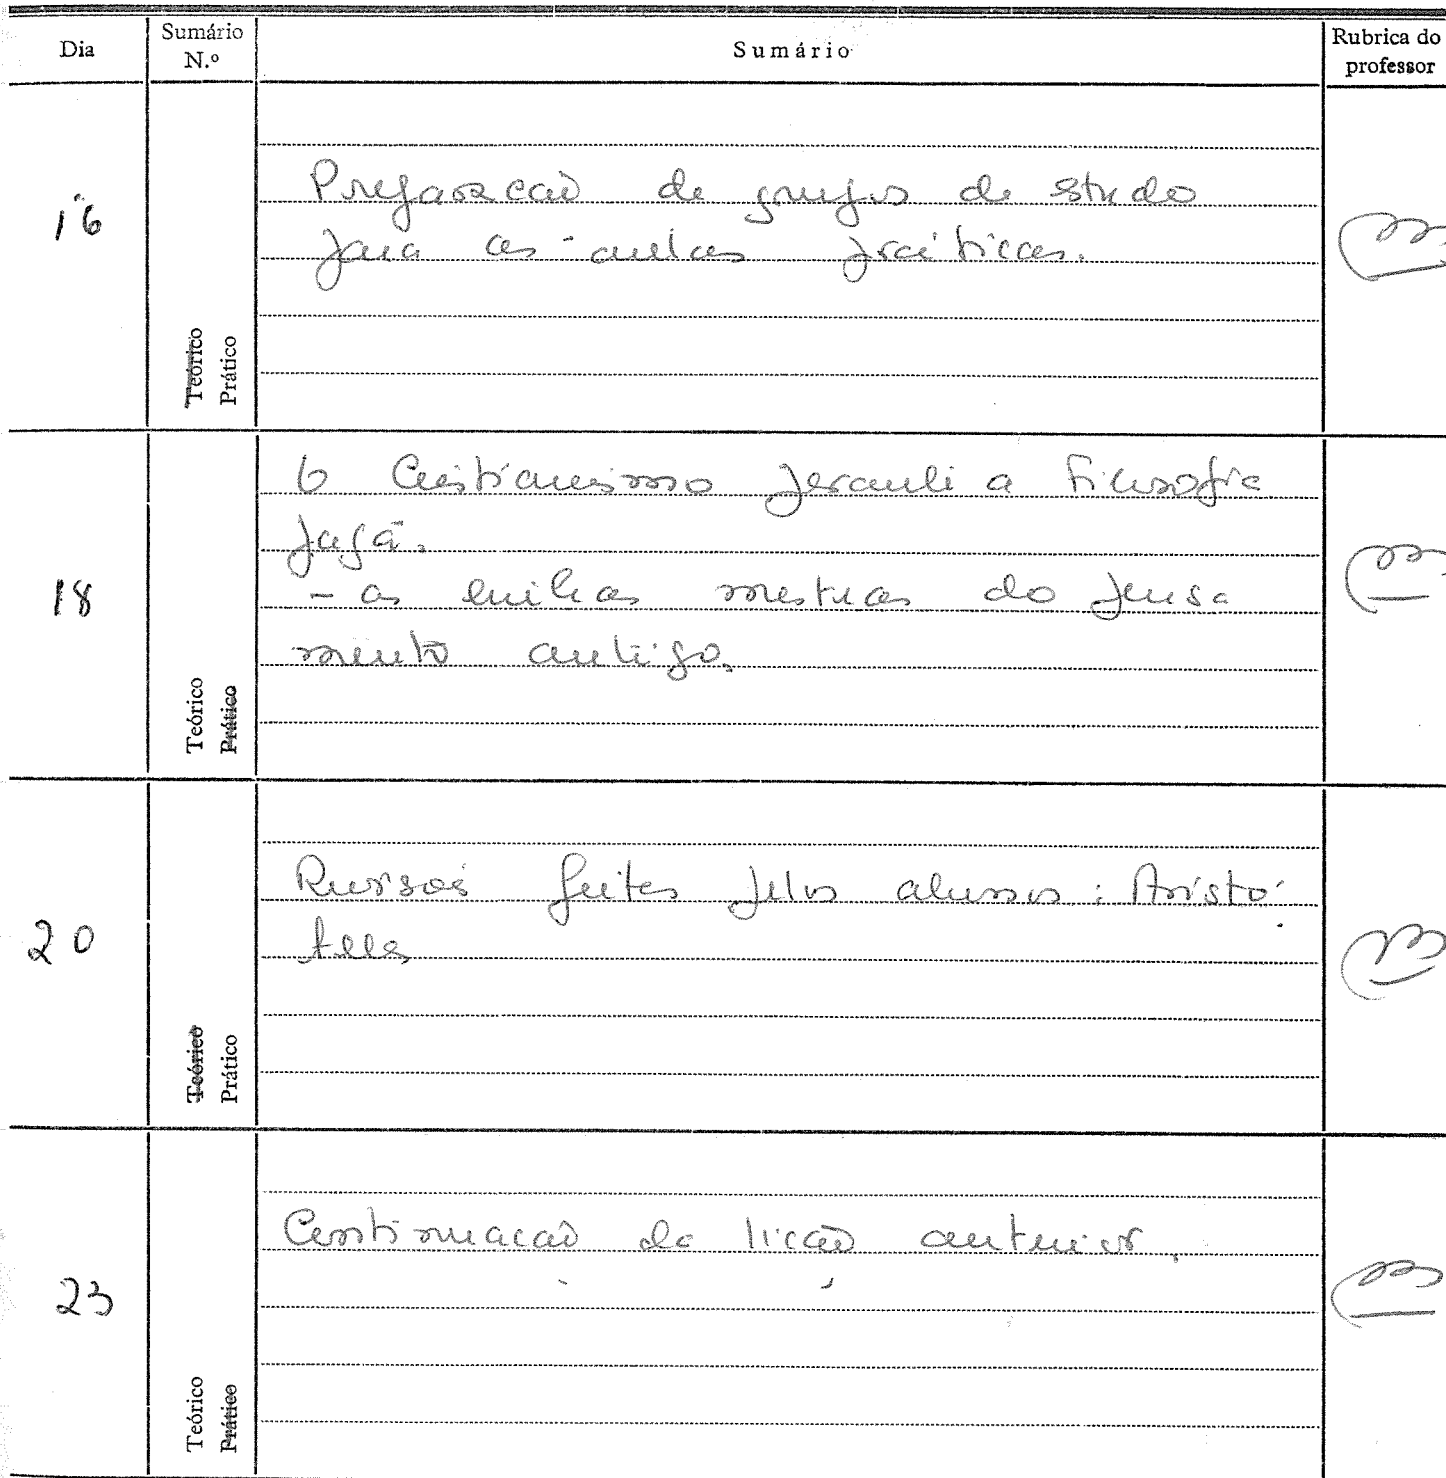 Dia
Sumário N.º
Sumário
Rubrica do professor
16
Teórico
Prático
Preparação de grupos de estudo
para as aulas práticas.
18
Teórico
Prático
O Cristianismo perante a Filosofia
pagã.
- as linhas mestras do pensa
mento antigo.
20
Teórico
Prático
feitas pelos alunos: Aristó
teles
23
Teórico
Prático
Continuação da lição anterior.